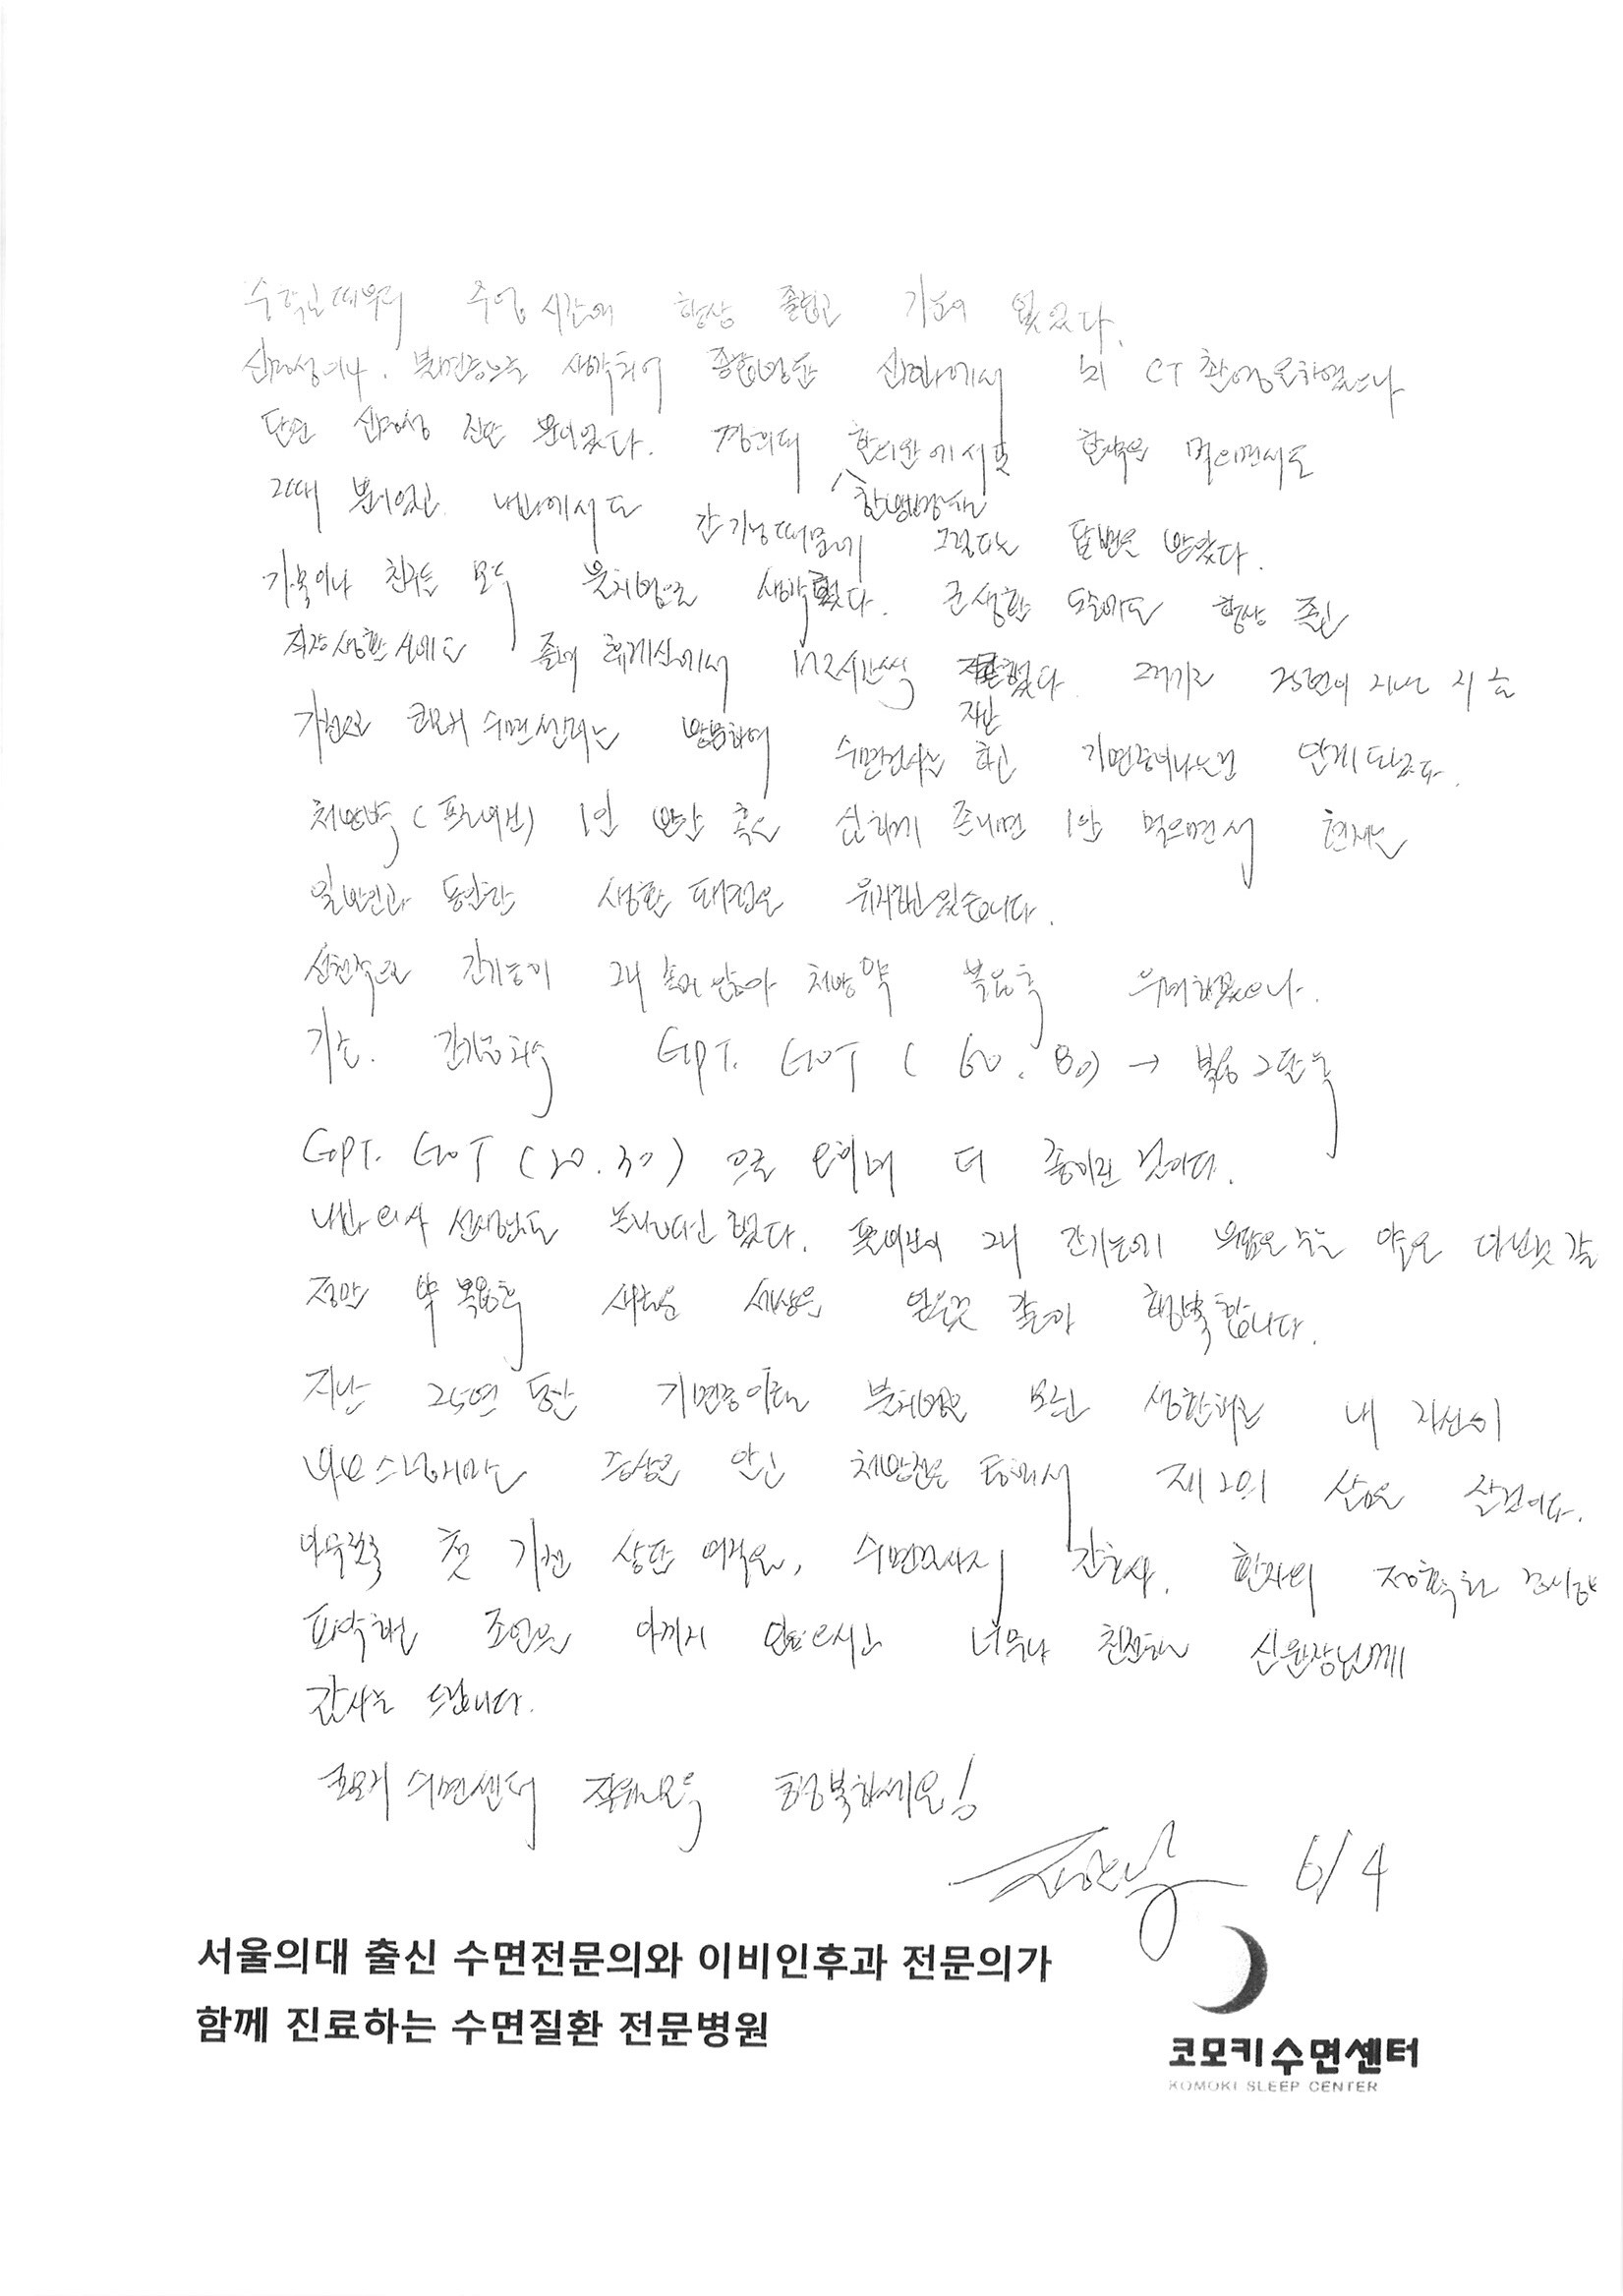 수업 시간에 항상 졸립고 기운이 없었다.
신경성이나, 불면증으로 생각되어 종합병원 신경과에서 뇌 CT 촬영을 하였으나
단순 신경성 진단 뿐이었다. 경희대 한의원에서도 한약을 먹이면서도
한방병원
그때 뿐이었고, 내과에서도 간기능 때문에 그렇다는 답변을 받았다.
가족이나 친구들 모두 불치병으로 생각했다. 군생활 항상 졸고
직장생활시에도 졸려 휴게실에서 1~2시간씩 25년이 지난 지금
지난
수면센터를 방문하여 수면검사를 하고 기면증이라는걸 알게되었다.
처방약 (프로비질) 1알 반알 혹은 심하게 졸리면 1알 먹으면서 현재는
일반인과 동일한 생활패턴을 유지하고 있습니다.
선천적으로 간기능이 그리 좋지 않아 처방약 복용후 우려했었으나.
기존. GPT. GOT ( 60. 80) → 복용 2달후
GPT. GOT (20. 30) 으로 오히려 더 좋아진 것이다.
내과 의사 선생님도 놀랍다고 했다. 그리 간기능에 부담을 주는 약은 아닌것 같
정말 약 복용후 새로운 세상을 얻은것 같아 행복합니다.
지난 25년 동안 기면증이란 불치병을 모르고 생활해온 내 자신이
바보스럽지만 증상을 알고 처방전을 통해서 제2의 삶을 살것이다.
아무쪼록 첫 기면 상담 수면검사시 간호사, 환자의 정확한
파악해 조언을 아끼지 않으시는 너무나 친절한 신원장님께
감사를 드립니다.
코모키 수면센터 직원모두 행복하세요!
6/4
서울의대 출신 수면전문의와 이비인후과 전문의가
함께 진료하는 수면질환 전문병원
코모키수면센터
KOMOKI SLEEP CENTER